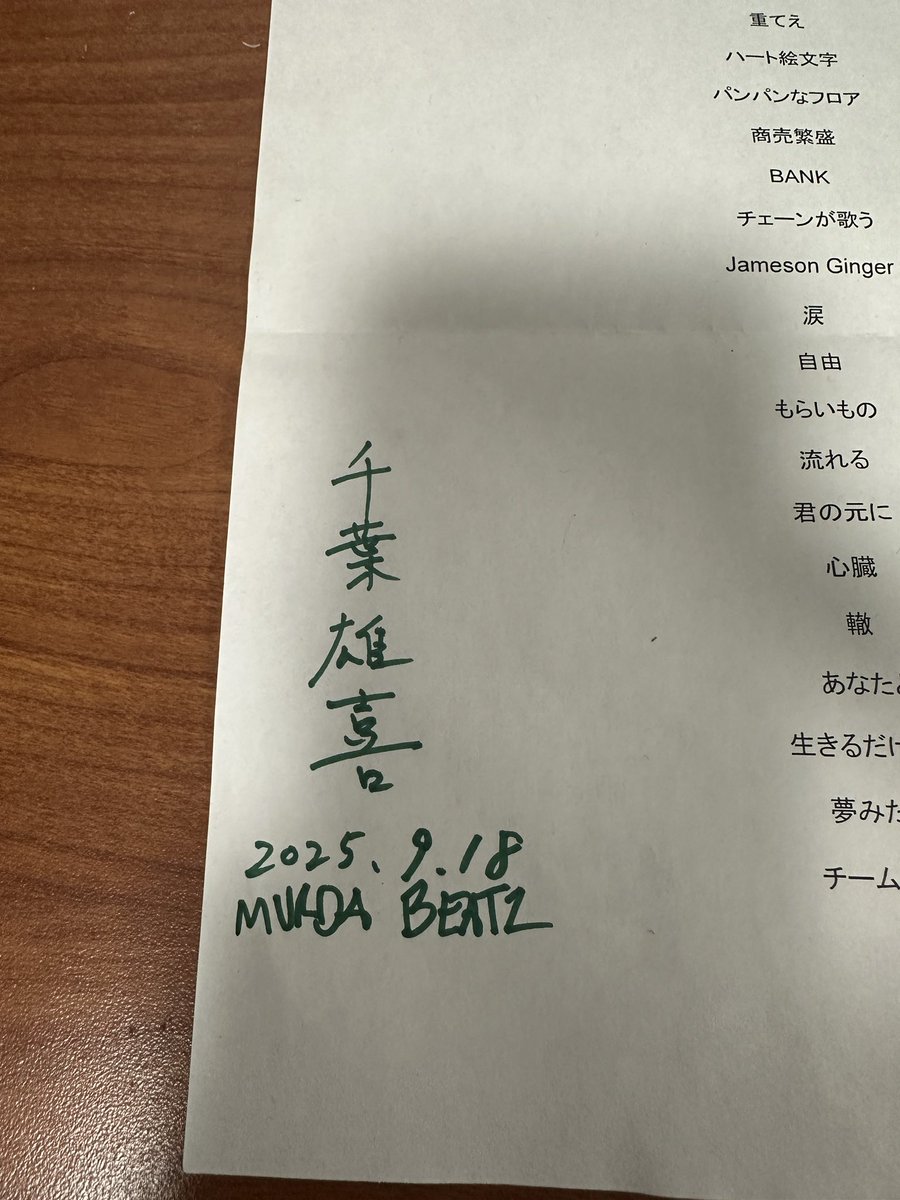 重てえ
ハート絵文字
パンパンなフロア
商売繁盛
BANK
チェーンが歌う
Jameson Ginger
涙
自由
もらいもの
流れる
君の元に
心臓
轍
あなたと
生きるだけ
夢みた
チーム
千葉雄喜
2025.9.18
MURDA BEATZ